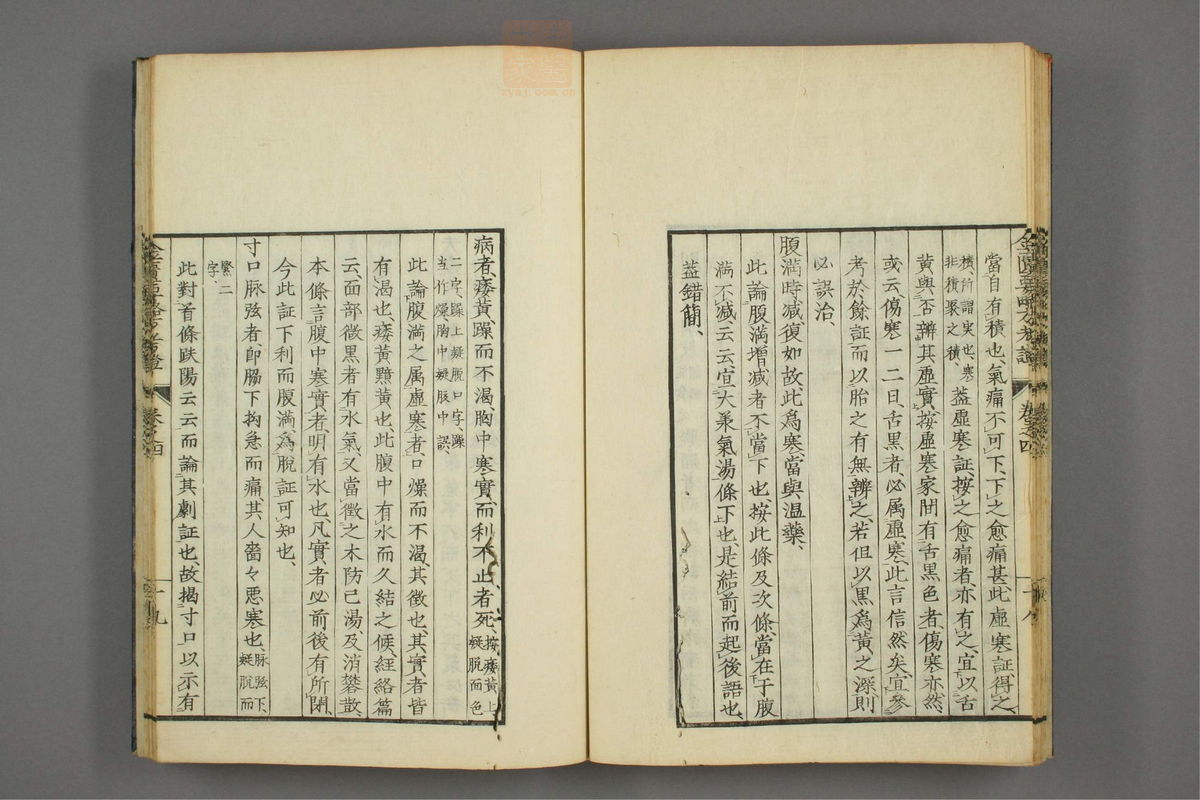 當自有積也、氣痛不可下、下之愈痛甚、此虛寒証得之、
積、所謂実也、寒
非積聚之積、
蓋虛寒証、按之愈痛者、亦有之、宜以舌
黃與否、辨其虛實、按虛寒家間有舌黑色者、傷寒亦然、
或云、傷寒一二日舌黑者、必属虛寒、此言信然矣、宜參
考於餘証、而以胎之有無辨之、若但以黑爲黃之深、則
必誤治、
腹満時減、復如故、此爲寒、當與温藥、
此論腹満增減者不當下也、按此條及次條、當在于腹
満不減云云、宜大承氣湯條下也、是結前而起後語也、
蓋錯簡、
病者、痿黃、躁而不渴、胸中寒實、而利不止者死、
按、痿黃上
疑脱面色
二字、躁上疑脱口字、躁
当作燥、胸中疑腹中誤、
此論腹満之属虛寒者、口燥而不渴、其徵也、其實者皆
有渴也、痿黃黯黃也、此腹中有水而久結之候、經絡篇
云、面部微黑者有水氣、又當徵之木防已湯、及消礬散、
本條言腹中寒實者、明有水也、凡實者必前後有所閉、
今此証下利而腹満、為脱証可知也、
寸口脉弦者、卽脇下拘急而痛、其人嗇々悪寒也、
脉弦下、
疑脱而
緊二
字、
此對首條趺陽云云而論其劇証也、故揭寸口以示有
卷之四
十九
卷之四
十八
zysj.com.cn